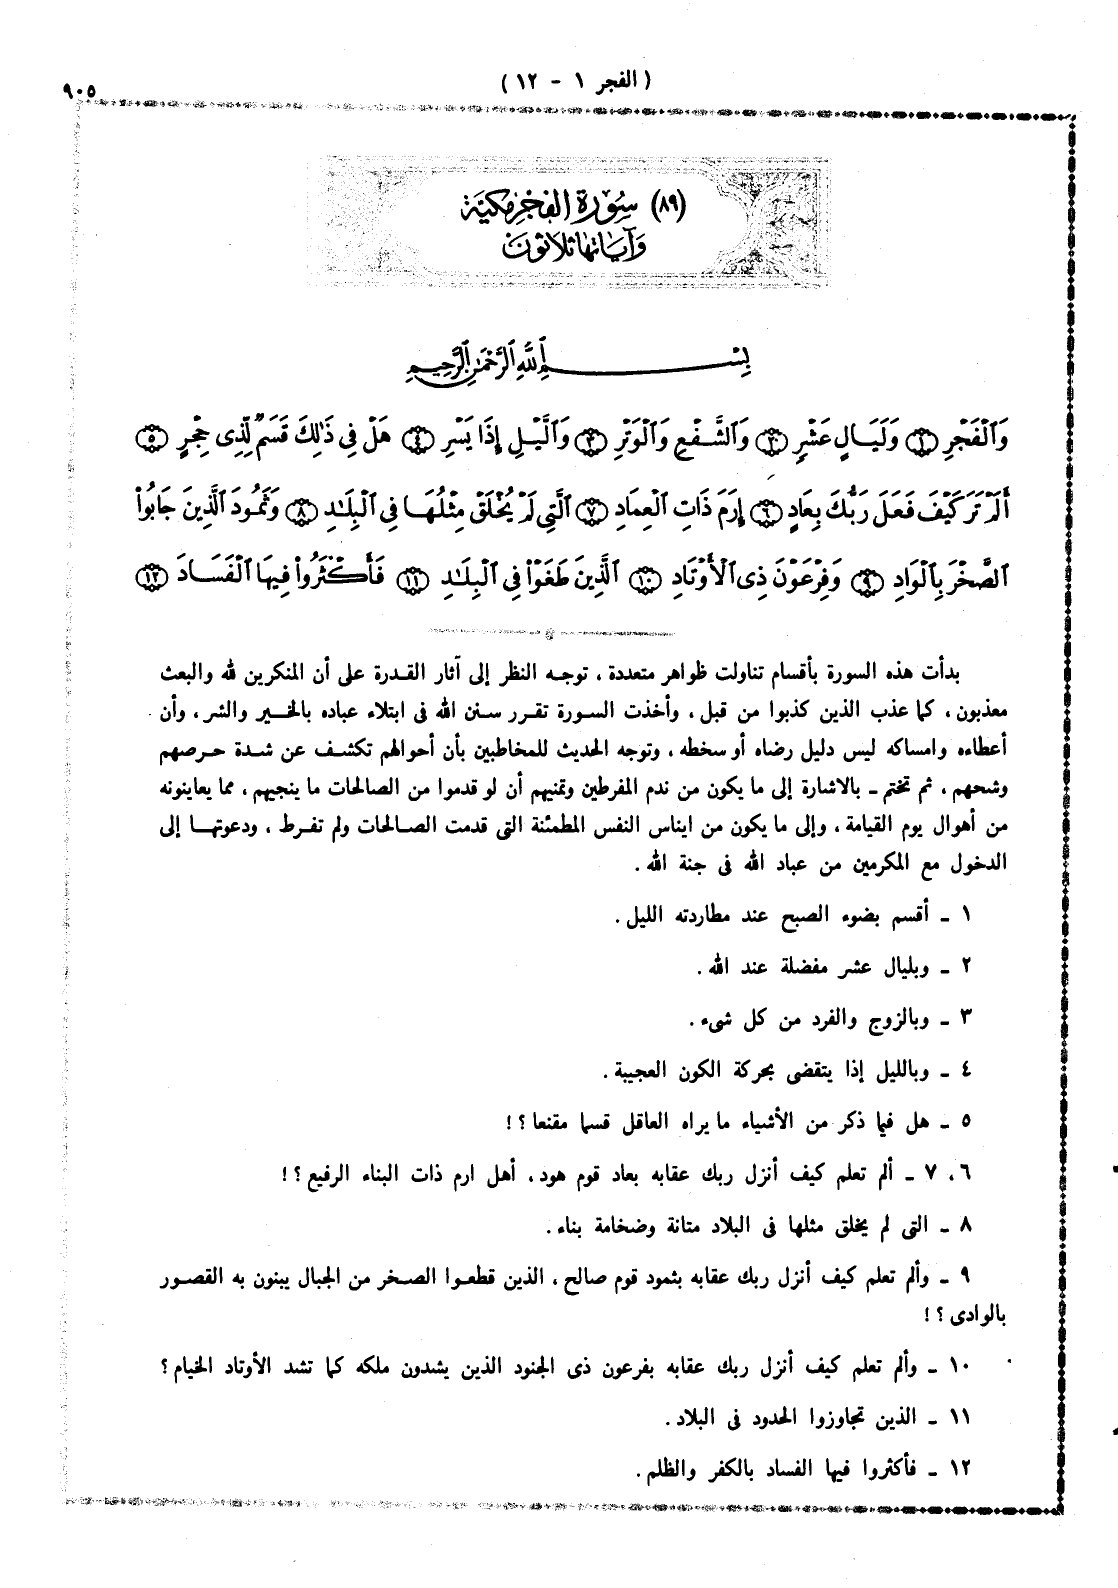 ( الفجر ١ - ١٢ )
٩٠٥
(٨٩) سُورَة الفَجْر مَكيَّة
وَآيَاتهَا ثَلَاثُونَ
بِسْمِ ٱللَّهِ ٱلرَّحْمَٰنِ ٱلرَّحِيمِ
وَٱلْفَجْرِ ۝١ وَلَيَالٍ عَشْرٍ ۝٢ وَٱلشَّفْعِ وَٱلْوَتْرِ ۝٣ وَٱلَّيْلِ إِذَا يَسْرِ ۝٤ هَلْ فِى ذَٰلِكَ قَسَمٌ لِّذِى حِجْرٍ ۝٥
أَلَمْ تَرَ كَيْفَ فَعَلَ رَبُّكَ بِعَادٍ ۝٦ إِرَمَ ذَاتِ ٱلْعِمَادِ ۝٧ ٱلَّتِى لَمْ يُخْلَقْ مِثْلُهَا فِى ٱلْبِلَٰدِ ۝٨ وَثَمُودَ ٱلَّذِينَ جَابُوا۟
ٱلصَّخْرَ بِٱلْوَادِ ۝٩ وَفِرْعَوْنَ ذِى ٱلْأَوْتَادِ ۝١٠ ٱلَّذِينَ طَغَوْا۟ فِى ٱلْبِلَٰدِ ۝١١ فَأَكْثَرُوا۟ فِيهَا ٱلْفَسَادَ ۝١٢
بدأت هذه السورة بأقسام تناولت ظواهر متعددة ، توجه النظر إلى آثار القدرة على أن المنكرين لله والبعث
معذبون ، كما عذب الذين كذبوا من قبل ، وأخذت السورة تقرر سنن الله فى ابتلاء عباده بالخير والشر ، وأن
أعطاءه وامساكه ليس دليل رضاه أو سخطه ، وتوجه الحديث للمخاطبين بأن أحوالهم تكشف عن شدة حرصهم
وشحهم ، ثم تختم ـ بالاشارة إلى ما يكون من ندم المفرطين وتمنيهم أن لو قدموا من الصالحات ما ينجيهم ، مما يعاينونه
من أهوال يوم القيامة ، وإلى ما يكون من ايناس النفس المطمئنة التى قدمت الصالحات ولم تفرط ، ودعوتها إلى
الدخول مع المكرمين من عباد الله فى جنة الله .
١ ـ أقسم بضوء الصبح عند مطاردته الليل .
٢ ـ وبليال عشر مفضلة عند الله .
٣ ـ وبالزوج والفرد من كل شىء .
٤ ـ وبالليل إذا يتقضى بحركة الكون العجيبة .
٥ ـ هل فيما ذكر من الأشياء ما يراه العاقل قسما مقنعا ؟ !
٦ ، ٧ ـ ألم تعلم كيف أنزل ربك عقابه بعاد قوم هود ، أهل ارم ذات البناء الرفيع ؟ !
٨ ـ التى لم يخلق مثلها فى البلاد متانة وضخامة بناء .
٩ ـ وألم تعلم كيف أنزل ربك عقابه بثمود قوم صالح ، الذين قطعوا الصخر من الجبال يبنون به القصور
بالوادى ؟ !
١٠ ـ وألم تعلم كيف أنزل ربك عقابه بفرعون ذى الجنود الذين يشدون ملكه كما تشد الأوتاد الخيام ؟
١١ ـ الذين تجاوزوا الحدود فى البلاد .
١٢ ـ فأكثروا فيها الفساد بالكفر والظلم .